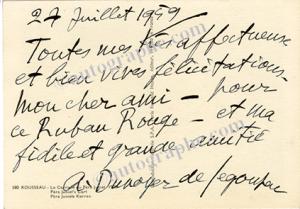 27 Juillet 1959
Toutes mes très affectueuse
et bien vives félicitations
mon cher ami - pour
ce Ruban Rouge - et ma
fidèle et grande amitié
A. Dunoyer de Segonzac
ROUSSEAU - La Carriole du Père
Père Junier's Cart
Père Juniets Karren
www.autographe.com